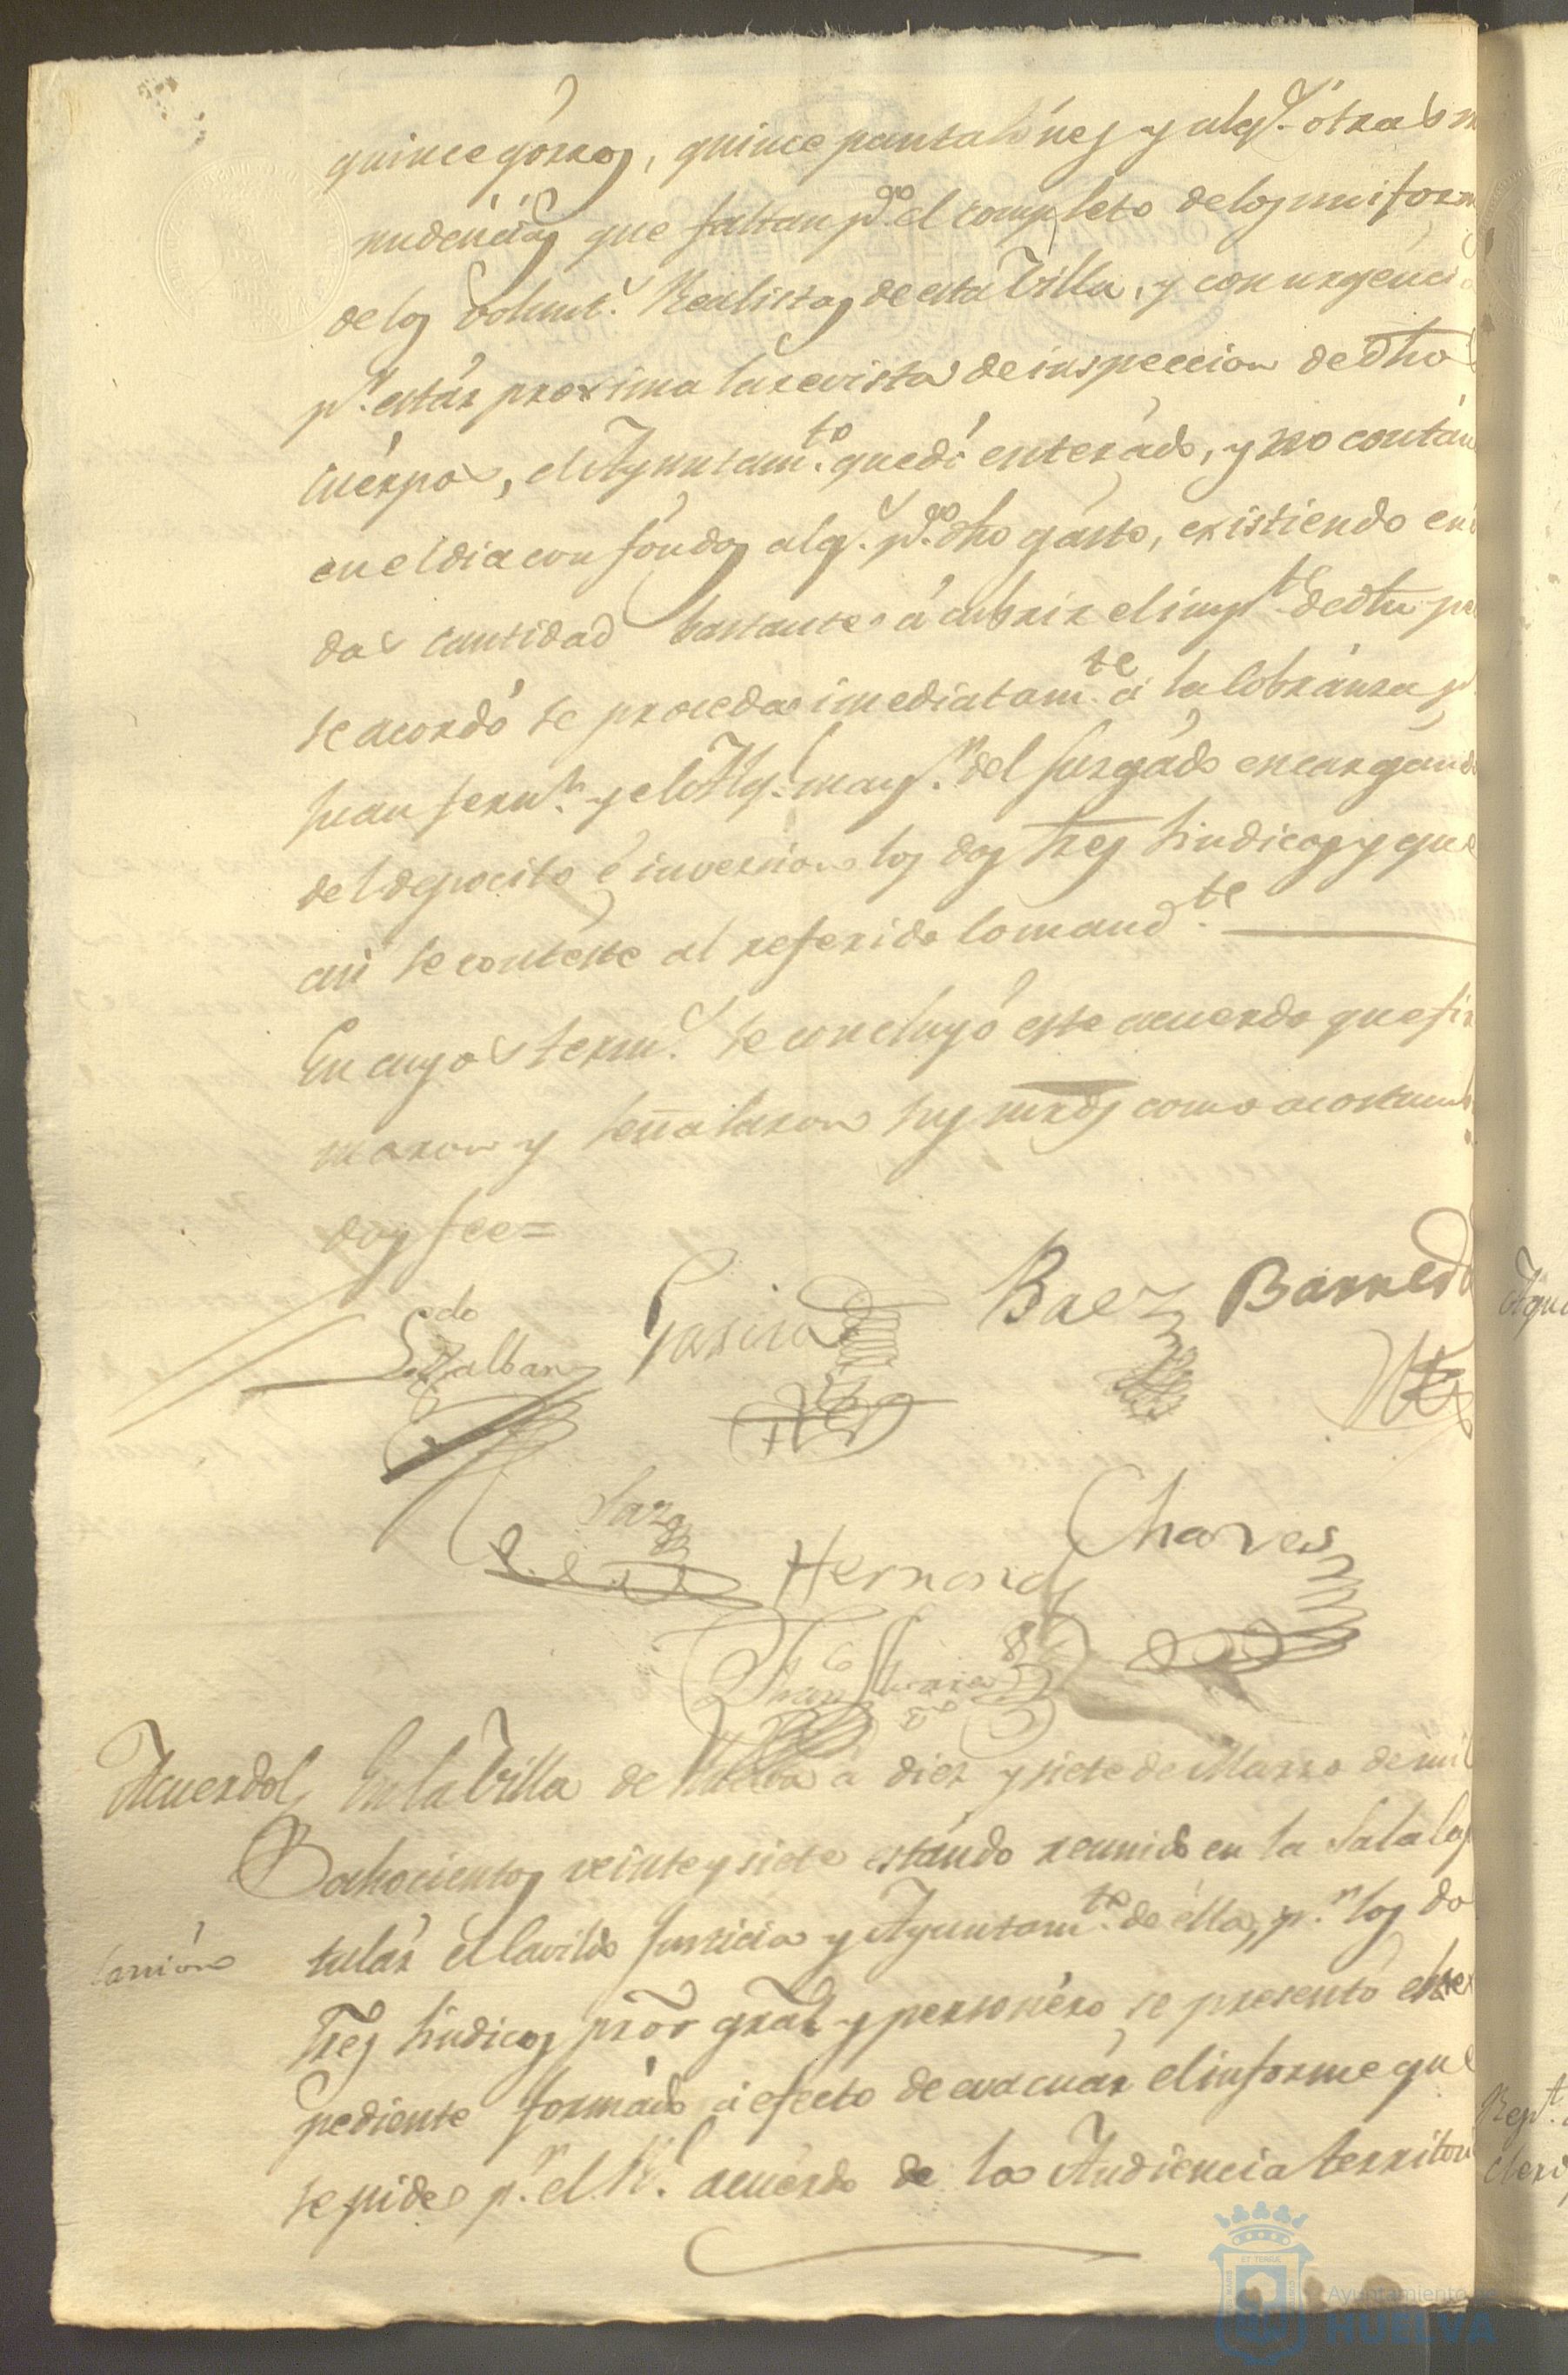 quince górros, quince pantalónes y alg.s ótras m
nudéncias que faltan p.a el completo de los uniform
de los Volunt.s Realistas de esta Villa, y con urgenci
p.r estár proxima la revista de inspeccion de dho
cuérpo, el Ayuntam.to quedó enterádo, y no contán
en el dia con fóndos alg.s p.a dho gásto, existiendo en
da cantidad bastante á cubrir el imp.te de dha pe
se acordó se proceda imediatam.te á la cobránza p.
Juan Fern.z y el Alg.l may.r del Juzgádo encargánd
del deposito é inversion los dos Sres Sindicos y que
asi se contéste al referido Comand.te
En cuyos term.s se concluyó este acuerdo que fir
maron y señalaron sus mrds como acostumb
doy fee=
Ldo Villalba
Garcia Baez Barreda
Saz
Hernand.z Chaves
Acuerdo En la Villa de Huelva á diez y siete de Marzo de mil
ochocientos veinte y siete estándo reunido en la Sala Cap
tulár el Cavildo Justicia y Ayuntam.to de élla, p.r los do
Sres Sindicos pror gral y personéro se presentó el ex
pediente formádo á efecto de evacuár el informe que
se pide p.r el R.l acuérdo de la Audiéncia territori
Aque
Rep.t
cleri
Ayuntamiento de
HUELVA